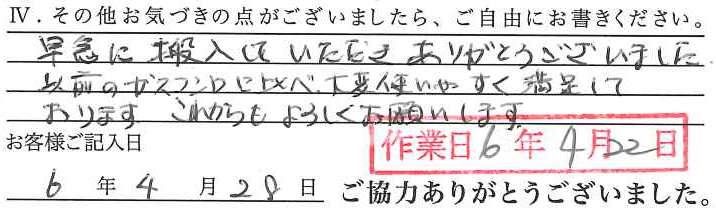 Ⅳ．その他お気づきの点がございましたら、ご自由にお書きください。
早急に搬入していただきありがとうございました
以前のガスコンロに比べ、大変使いやすく満足して
おります これからもよろしくお願いします。
お客様ご記入日
作業日 6 年 4 月 22 日
6 年 4 月 28 日 ご協力ありがとうございました。